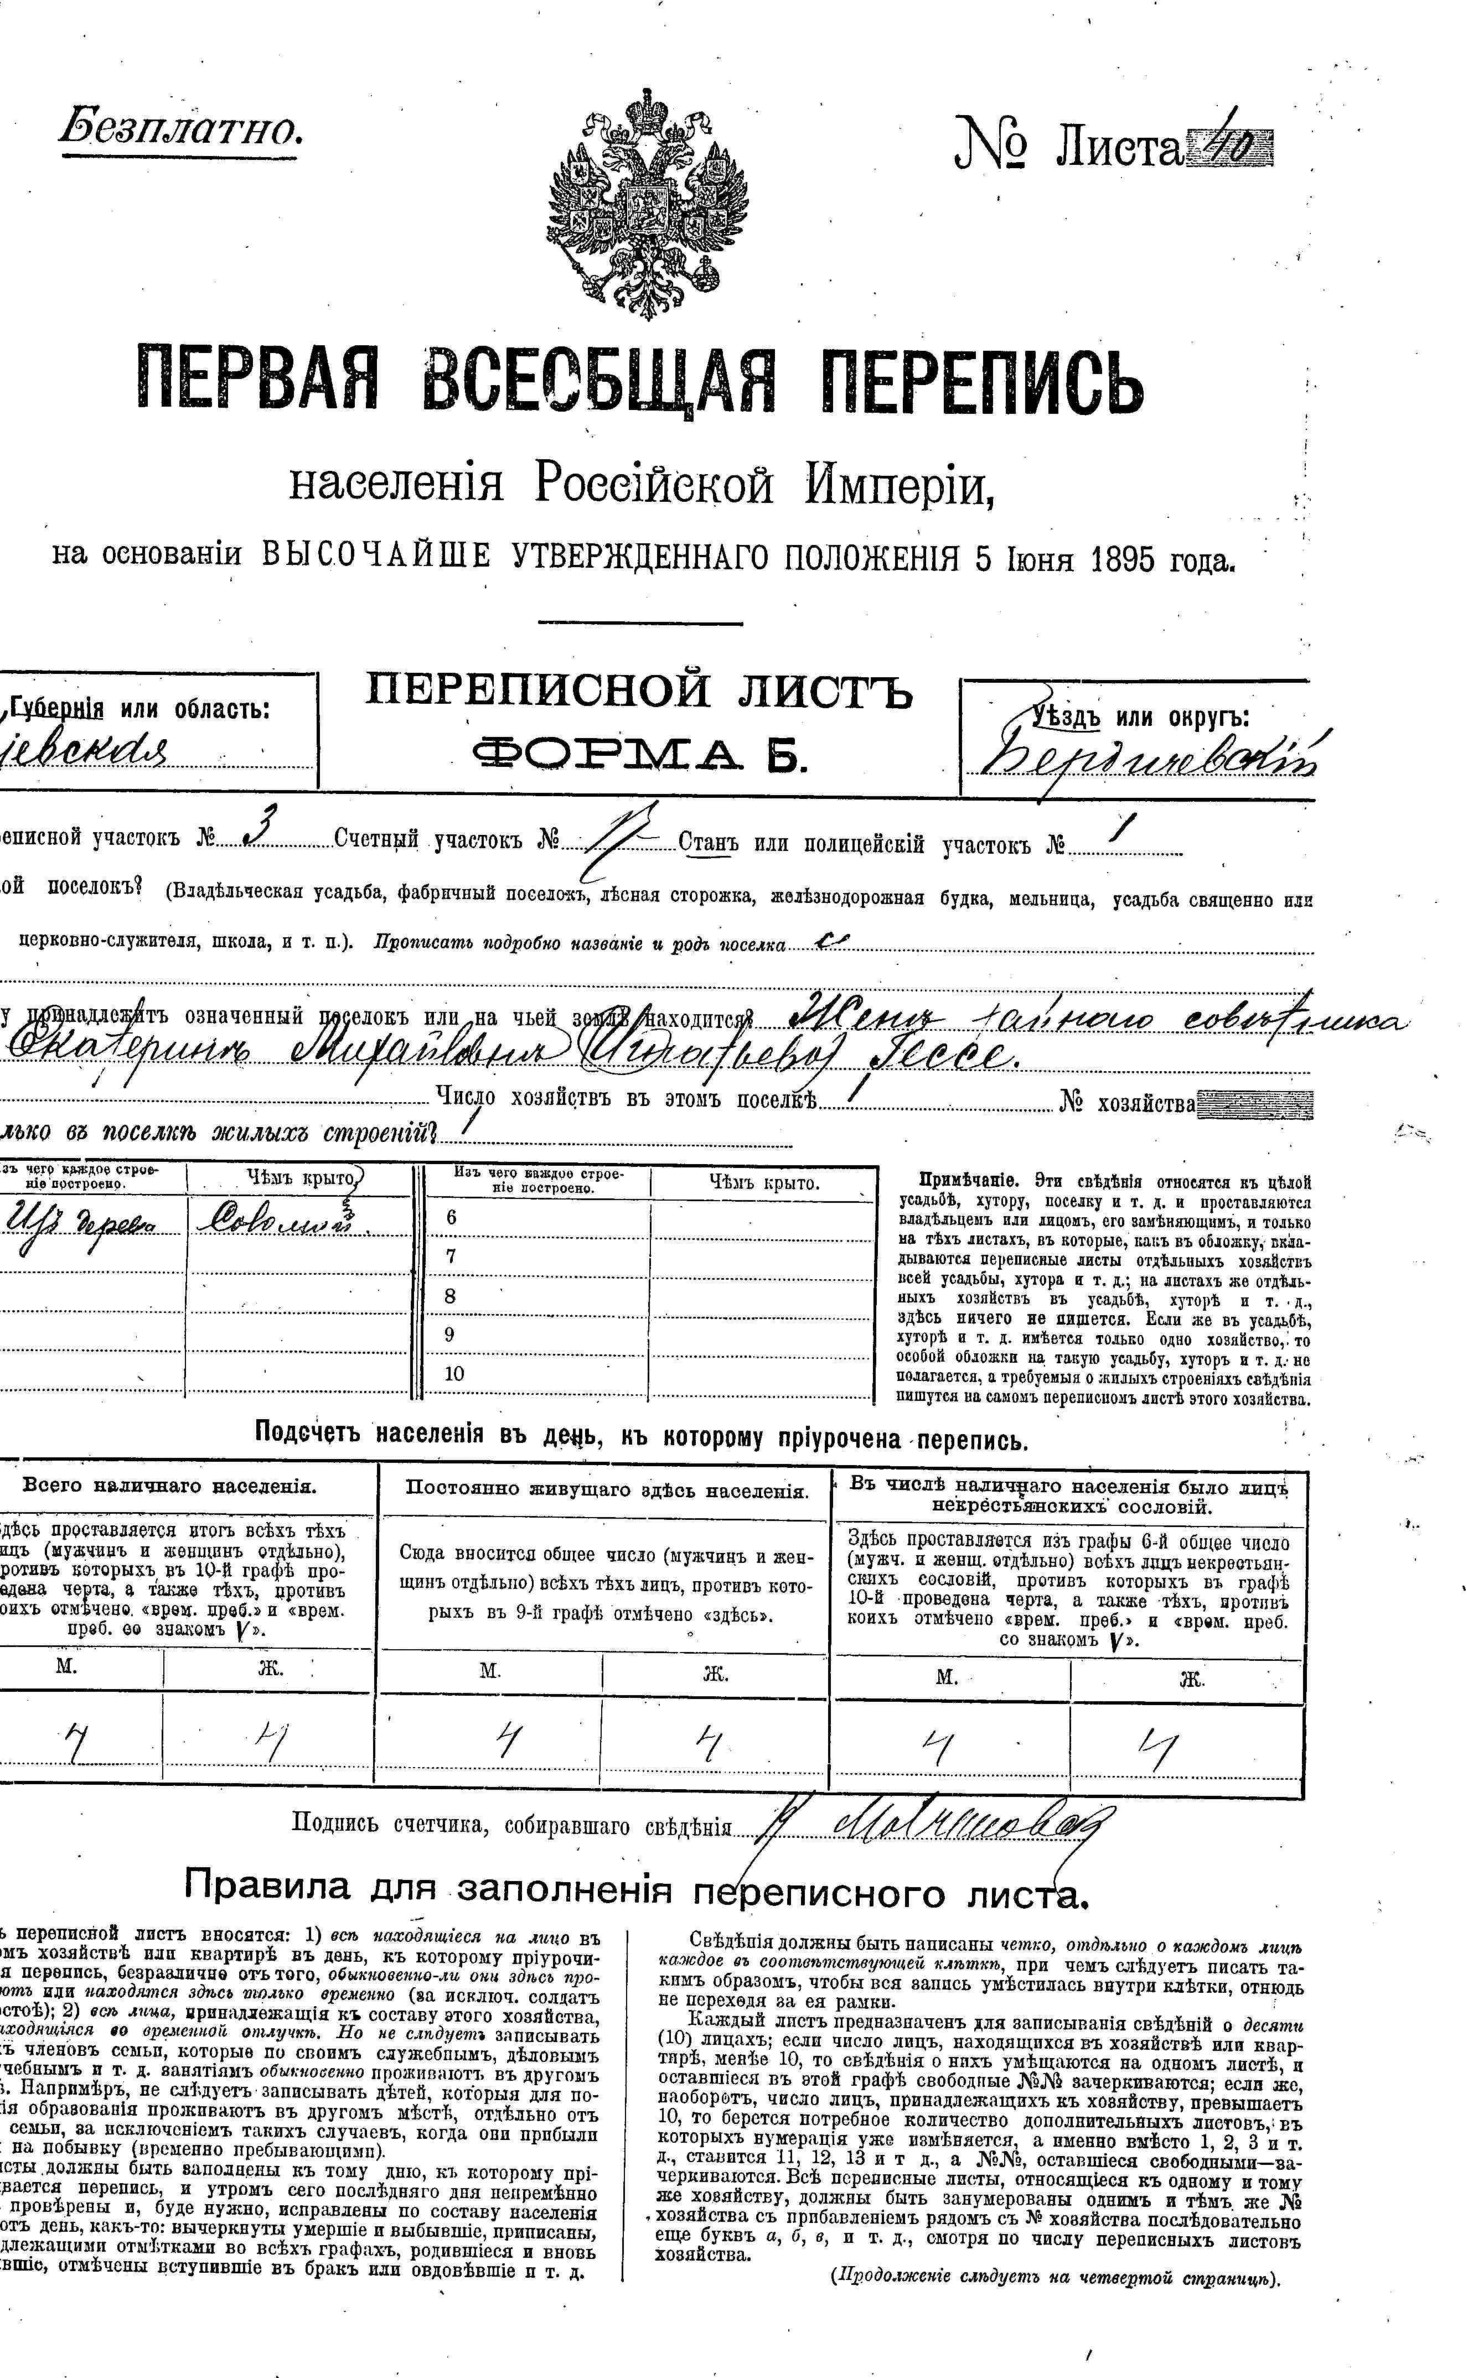 Безплатно.
№ Листа 40
ПЕРВАЯ ВСЕОБЩАЯ ПЕРЕПИСЬ
населенія Россійской Имперіи,
на основаніи ВЫСОЧАЙШЕ УТВЕРЖДЕННАГО ПОЛОЖЕНІЯ 5 Іюня 1895 года.
Губернія или область:
іевская
ПЕРЕПИСНОЙ ЛИСТЪ
ФОРМА Б.
Уѣздъ или округъ:
Бердичевскій
еписной участокъ № 3 Счетный участокъ № Станъ или полицейскій участокъ № 1
ой поселокъ? (Владѣльческая усадьба, фабричный поселокъ, лѣсная сторожка, желѣзнодорожная будка, мельница, усадьба священно или
церковно-служителя, школа, и т. п.). Прописать подробно названіе и родъ поселка
у принадлежитъ означенный поселокъ или на чьей землѣ находится? Женѣ тайного совѣтника
Екатеринѣ Михайловнѣ (Игнатьевой) Гессе.
Число хозяйствъ въ этомъ поселкѣ 1 № хозяйства
лько въ поселкѣ жилыхъ строеній? 1
зъ чего каждое строе-
ніе построено.
Чѣмъ крыто
Изъ чего каждое строе-
ніе построено.
Чѣмъ крыто.
Изъ дерева Соломой.
6
7
8
9
10
Примѣчаніе. Эти свѣдѣнія относятся къ цѣлой
усадьбѣ, хутору, поселку и т. д. и проставляются
владѣльцемъ или лицомъ, его замѣняющимъ, и только
на тѣхъ листахъ, въ которые, какъ въ обложку, вкла-
дываются переписные листы отдѣльныхъ хозяйствъ
всей усадьбы, хутора и т. д.; на листахъ же отдѣль-
ныхъ хозяйствъ въ усадьбѣ, хуторѣ и т. д.,
здѣсь ничего не пишется. Если же въ усадьбѣ,
хуторѣ и т. д. имѣется только одно хозяйство, то
особой обложки на такую усадьбу, хуторъ и т. д. не
полагается, а требуемыя о жилыхъ строеніяхъ свѣдѣнія
пишутся на самомъ переписномъ листѣ этого хозяйства.
Подсчетъ населенія въ день, къ которому пріурочена перепись.
Всего наличнаго населенія.
здѣсь проставляется итогъ всѣхъ тѣхъ
ицъ (мужчинъ и женщинъ отдѣльно),
ротивъ которыхъ въ 10-й графѣ про-
едена черта, а также тѣхъ, противъ
оихъ отмѣчено «врем. преб.» и «врем.
преб. со знакомъ V».
Постоянно живущаго здѣсь населенія.
Сюда вносится общее число (мужчинъ и жен-
щинъ отдѣльно) всѣхъ тѣхъ лицъ, противъ кото-
рыхъ въ 9-й графѣ отмѣчено «здѣсь».
Въ числѣ наличнаго населенія было лицъ
некрестьянскихъ сословій.
Здѣсь проставляется изъ графы 6-й общее число
(мужч. и женщ. отдѣльно) всѣхъ лицъ некрестьян-
скихъ сословій, противъ которыхъ въ графѣ
10-й проведена черта, а также тѣхъ, противъ
коихъ отмѣчено «врем. преб.» и «врем. преб.
со знакомъ V».
М. Ж. М. Ж. М. Ж.
4 4 4 4 4 4
Подпись счетчика, собиравшаго свѣдѣнія
Правила для заполненія переписного листа.
ь переписной листъ вносятся: 1) всѣ находящіеся на лицо въ
омъ хозяйствѣ или квартирѣ въ день, къ которому пріурочи-
я перепись, безразлично отъ того, обыкновенно-ли они здѣсь про-
ютъ или находятся здѣсь только временно (за исключ. солдатъ
остоѣ); 2) всѣ лица, принадлежащія къ составу этого хозяйства,
аходящіяся во временной отлучкѣ. Но не слѣдуетъ записывать
ъ членовъ семьи, которые по своимъ служебнымъ, дѣловымъ
чебнымъ и т. д. занятіямъ обыкносенно проживаютъ въ другомъ
ѣ. Напримѣръ, не слѣдуетъ записывать дѣтей, которыя для по-
ія образованія проживаютъ въ другомъ мѣстѣ, отдѣльно отъ
семьи, за исключеніемъ такихъ случаевъ, когда они прибыли
на побывку (временно пребывающими).
исты должны быть заполнены къ тому дню, къ которому прі-
вается перепись, и утромъ сего послѣдняго дня непремѣнно
провѣрены и, буде нужно, исправлены по составу населенія
отъ день, какъ-то: вычеркнуты умершіе и выбывшіе, приписаны,
длежащими отмѣтками во всѣхъ графахъ, родившіеся и вновь
ившіе, отмѣчены вступившіе въ бракъ или овдовѣвшіе и т. д.
Свѣдѣнія должны быть написаны четко, отдѣльно о каждомъ лицѣ
каждое въ соотвѣтствующей клѣткѣ, при чемъ слѣдуетъ писать та-
кимъ образомъ, чтобы вся запись умѣстилась внутри клѣтки, отнюдь
не переходя за ея рамки.
Каждый листъ предназначенъ для записыванія свѣдѣній о десяти
(10) лицахъ; если число лицъ, находящихся въ хозяйствѣ или квар-
тирѣ, менѣе 10, то свѣдѣнія о нихъ умѣщаются на одномъ листѣ, и
оставшіеся въ этой графѣ свободные №№ зачеркиваются; если же,
наоборотъ, число лицъ, принадлежащихъ къ хозяйству, превышаетъ
10, то берется потребное количество дополнительныхъ листовъ, въ
которыхъ нумерація уже измѣняется, а именно вмѣсто 1, 2, 3 и т.
д., ставится 11, 12, 13 и т д., а №№, оставшіеся свободными—за-
черкиваются. Всѣ переписные листы, относящіеся къ одному и тому
же хозяйству, должны быть занумерованы однимъ и тѣмъ же №
хозяйства съ прибавленіемъ рядомъ съ № хозяйства послѣдовательно
еще буквъ а, б, в, и т. д., смотря по числу переписныхъ листовъ
хозяйства.
(Продолженіе слѣдуетъ на четвертой страницѣ).